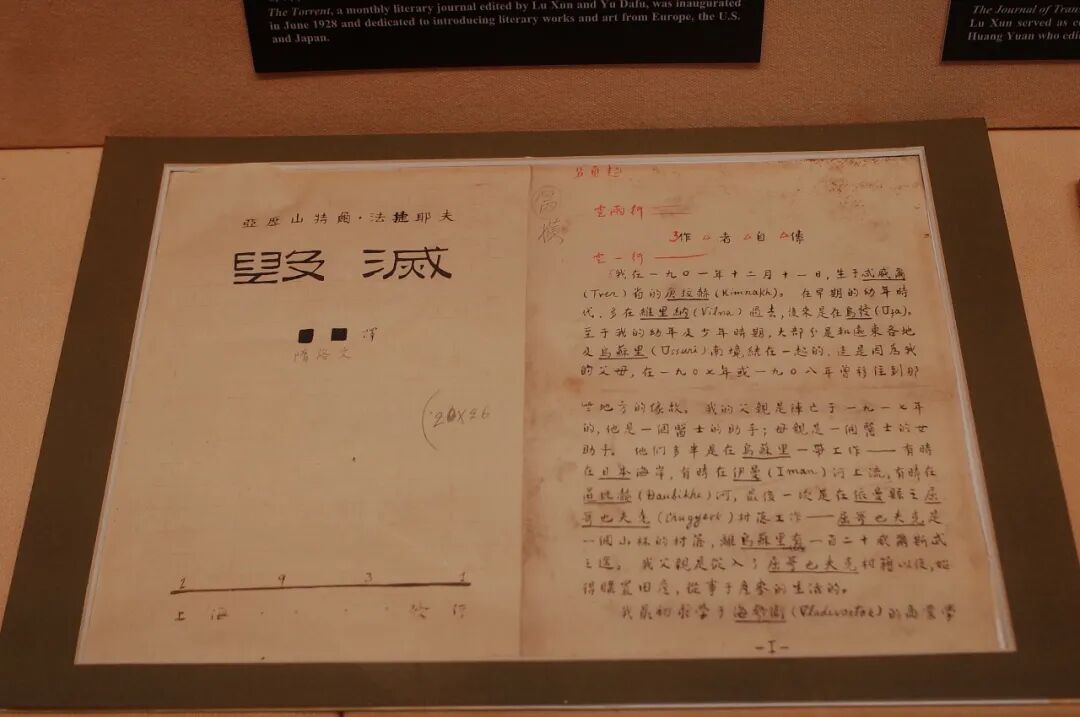 The Torrent, a monthly literary journal edited by Lu Xun and Yu Dafu, was inaugurated
in June 1928 and dedicated to introducing literary works and art from Europe, the U.S.
and Japan.
The Journal of Trans
Lu Xun served as c
Huang Yuan who edi
亞歷山特爾·法捷耶夫
毀滅
譯
隋洛文
(20X26
1 9 3 1
上海
空兩行
作者自傳
空一行
我在一九〇一年十二月十一日,生于忒威爾
(Tver)省的庚拉赫(Kimrakh)。在早期的幼年時
代,多在維里納(Vilna)過去,後來是在烏發(Ufa)。
至于我的幼年及少年時期,大部分是和遠東各地
及烏蘇里(Ussuri)南境結在一起的,這是因爲我
的父母,在一九〇七年或一九〇八年曾移住到那
些地方的緣故。我的父親是陣亡于一九一七年
的,他是一個醫士的助手;母親是一個醫士的女
助手。他们多半是在烏蘇里一帶工作——有時
在日本海岸,有時在伊曼(Iman)河上流,有時在
(Daubikhe)河,最後一次是在依曼縣之屈
哥也夫克(Chuguevk)村落工作——屈哥也夫克是
一個山林的村落,離烏蘇里 一百二十威爾斯忒
之遠。我父親是從入了屈哥也夫克村籍以後,始
得購置田產,從事于 的生活的。
我最初求學于海參衛(Vladivostok)的商業學
-I-